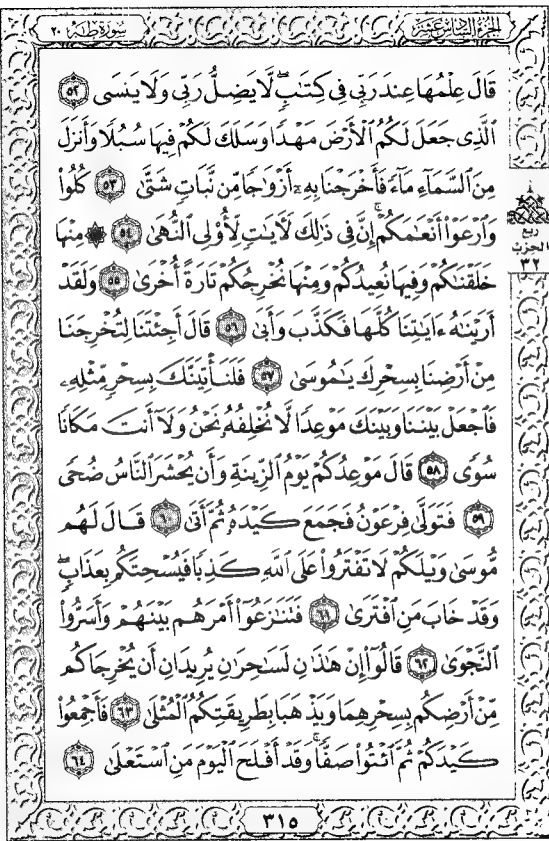 الجزء السادس عشر
سورة طه ٢٠
قَالَ عِلْمُهَا عِندَ رَبِّي فِي كِتَٰبٍۖ لَّا يَضِلُّ رَبِّي وَلَا يَنسَى ٥٢
ٱلَّذِي جَعَلَ لَكُمُ ٱلْأَرْضَ مَهْدًا وَسَلَكَ لَكُمْ فِيهَا سُبُلًا وَأَنزَلَ
مِنَ ٱلسَّمَآءِ مَآءً فَأَخْرَجْنَا بِهِۦٓ أَزْوَٰجًا مِّن نَّبَاتٍ شَتَّىٰ ٥٣ كُلُوا۟
وَٱرْعَوْا۟ أَنْعَٰمَكُمْۗ إِنَّ فِي ذَٰلِكَ لَءَايَٰتٍ لِّأُو۟لِي ٱلنُّهَىٰ ٥٤ ۞ مِنْهَا
خَلَقْنَٰكُمْ وَفِيهَا نُعِيدُكُمْ وَمِنْهَا نُخْرِجُكُمْ تَارَةً أُخْرَىٰ ٥٥ وَلَقَدْ
أَرَيْنَٰهُ ءَايَٰتِنَا كُلَّهَا فَكَذَّبَ وَأَبَىٰ ٥٦ قَالَ أَجِئْتَنَا لِتُخْرِجَنَا
مِنْ أَرْضِنَا بِسِحْرِكَ يَٰمُوسَىٰ ٥٧ فَلَنَأْتِيَنَّكَ بِسِحْرٍ مِّثْلِهِۦ
فَٱجْعَلْ بَيْنَنَا وَبَيْنَكَ مَوْعِدًا لَّا نُخْلِفُهُۥ نَحْنُ وَلَآ أَنتَ مَكَانًا
سُوًى ٥٨ قَالَ مَوْعِدُكُمْ يَوْمُ ٱلزِّينَةِ وَأَن يُحْشَرَ ٱلنَّاسُ ضُحًى
٥٩ فَتَوَلَّىٰ فِرْعَوْنُ فَجَمَعَ كَيْدَهُۥ ثُمَّ أَتَىٰ ٦٠ قَالَ لَهُم
مُّوسَىٰ وَيْلَكُمْ لَا تَفْتَرُوا۟ عَلَى ٱللَّهِ كَذِبًا فَيُسْحِتَكُم بِعَذَابٍۖ
وَقَدْ خَابَ مَنِ ٱفْتَرَىٰ ٦١ فَتَنَٰزَعُوٓا۟ أَمْرَهُم بَيْنَهُمْ وَأَسَرُّوا۟
ٱلنَّجْوَىٰ ٦٢ قَالُوٓا۟ إِنْ هَٰذَٰنِ لَسَٰحِرَٰنِ يُرِيدَانِ أَن يُخْرِجَاكُم
مِّنْ أَرْضِكُم بِسِحْرِهِمَا وَيَذْهَبَا بِطَرِيقَتِكُمُ ٱلْمُثْلَىٰ ٦٣ فَأَجْمِعُوا۟
كَيْدَكُمْ ثُمَّ ٱئْتُوا۟ صَفًّاۚ وَقَدْ أَفْلَحَ ٱلْيَوْمَ مَنِ ٱسْتَعْلَىٰ ٦٤
ربع
الحزب
٣٢
٣١٥